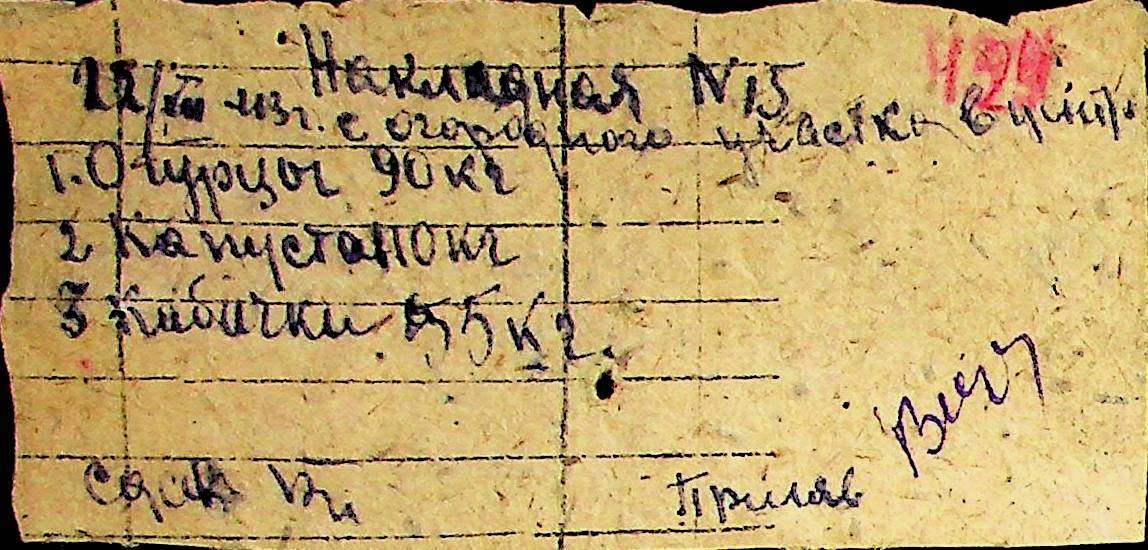 Накладная N 15
429
22/VIII 43г. с огородного участка в
1. Огурцы 90 кг
2 Капуста 110 кг
3 Кабачки 55 кг.
Сдал
Принял